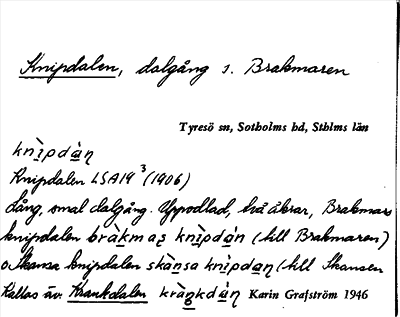 Knipdalen, dalgång s. Brakmaren
Tyresö sn, Sotholms hd, Sthlms län
knìpdàn
Knipdalen LSA19³ (1906)
Lång, smal dalgång. Uppodlad, två åkrar, Brakmars
knipdalen bràkmas knìpdàn (till Brakmaren)
o. Skansa knipdalen skànsa knìpdan (till Skansen
Kallas äv. Krankdalen kràŋkdàn Karin Grafström 1946